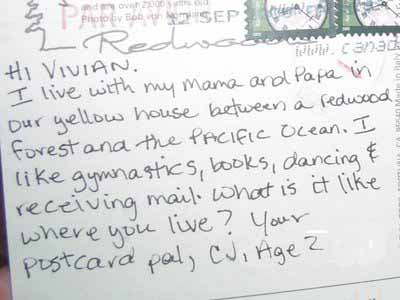 and are over 2,000 years old.
Photo by Bob von Normann
12 SEP
Redwood
Hi Vivian.
I live with my Mama and Papa in
our yellow house between a redwood
forest and the Pacific Ocean. I
like gymnastics, books, dancing &
receiving mail. What is it like
where you live? Your
postcard pal, CJ, Age 2
Made in Italy